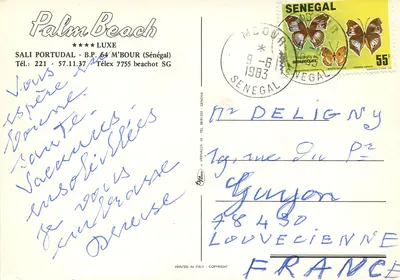 Palm Beach
★★★★LUXE
SALI PORTUDAL - B.P. 64 M'BOUR (Sénégal)
Tél.: 221 - 57.11.37 Télex 7755 beachot SG
Vous
espère en
bonne
Santé.
Vacances
ensoleillées
Je vous
embrasse
Denise
SENEGAL
55F
M'BOUR
9-6
1983
SENEGAL
Mr DELIGNY
19, rue du Pr
Guyon
78430
LOUVECIENNE
FRANCE
PRINTED IN ITALY - COPYRIGHT